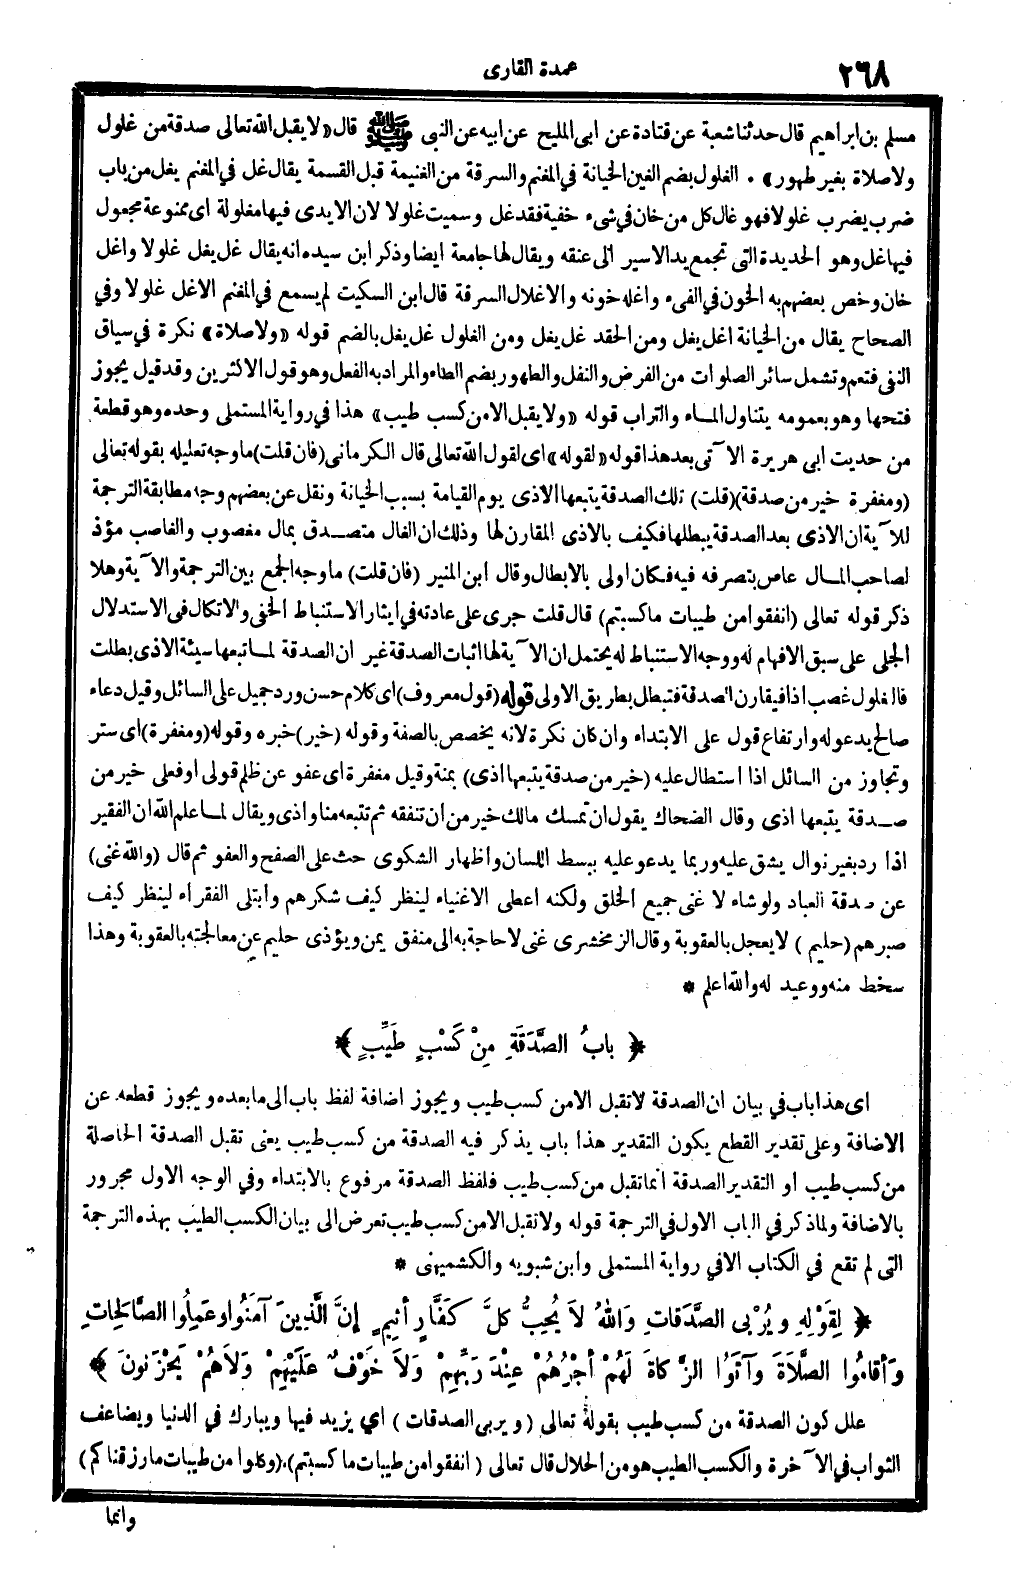 ٢٦٨
عمدة القارى
مسلم بن ابراهيم قال حدثنا شعبة عن قتادة عن ابى المليح عن ابيه عن النبى ﷺ قال «لا يقبل الله تعالى صدقة من غلول
ولا صلاة بغير طهور» . الغلول بضم الغين الخيانة في المغنم والسرقة من الغنيمة قبل القسمة يقال غل في المغنم يغل من باب
ضرب يضرب غلولا فهو غال كل من خان في شىء خفية فقد غل وسميت غلولا لان الايدى فيها مغلولة اى ممنوعة مجعول
فيها غل وهو الحديدة التى تجمع يد الاسير الى عنقه ويقال لها جامعة ايضا وذكر ابن سيده انه يقال غل يغل غلولا واغل
خان وخص بعضهم به الخون في الفىء واغله خونه والاغلال السرقة قال ابن السكيت لم يسمع في المغنم الا غل غلولا وفي
الصحاح يقال من الخيانة اغل يغل ومن الحقد غل يغل ومن الغلول غل يغل بالضم قوله «ولا صلاة» نكرة في سياق
النفى فتعم وتشمل سائر الصلوات من الفرض والنفل والطهور بضم الطاء والمراد به الفعل وهو قول الاكثرين وقد قيل يجوز
فتحها وهو بعمومه يتناول المــاء والتراب قوله «ولا يقبل الا من كسب طيب» هذا في رواية المستملى وحده وهو قطعة
من حديث ابى هريرة الآتى بعد هذا قوله «لقوله» اى لقول الله تعالى قال الكرمانى (فان قلت) ما وجه تعليله بقوله تعالى
(ومغفرة خير من صدقة) (قلت) تلك الصدقة يتبعها الاذى يوم القيامة بسبب الخيانة ونقل عن بعضهم وجه مطابقة الترجمة
للآية ان الاذى بعد الصدقة يبطلها فكيف بالاذى المقارن لها وذلك ان الغال متصــدق بمال مغصوب والغاصب مؤذ
لصاحب المــال عاص بتصرفه فيه فكان اولى بالابطال وقال ابن المنير (فان قلت) ما وجه الجمع بين الترجمة والآية وهلا
ذكر قوله تعالى (انفقوا من طيبات ما كسبتم) قال قلت جرى على عادته في ايثار الاستنباط الخفى والاتكال فى الاستدلال
الجلى على سبق الافهام له ووجه الاستنباط له يحتمل ان الآية لها اثبات الصدقة غير ان الصدقة لمــا تبعها سيئة الاذى بطلت
فالغلول غصب اذا فيقارن الصدقة فتبطل بطريق الاولى قوله (قول معروف) اى كلام حسن ورد جميل على السائل وقيل دعاء
صالح يدعو له وارتفاع قول على الابتداء وان كان نكرة لانه يخصص بالصفة وقوله (خير) خبره وقوله (ومغفرة) اى ستر
وتجاوز من السائل اذا استطال عليه (خير من صدقة يتبعها اذى) بمنة وقيل مغفرة اى عفو عن ظلم قولى او فعلى خير من
صــدقة يتبعها اذى وقال الضحاك يقول ان تمسك مالك خير من ان تنفقه ثم تتبعه منا واذى ويقال لمــا علم الله ان الفقير
اذا رد بغير نوال يشق عليه وربما يدعو عليه ببسط اللسان واظهار الشكوى حث على الصفح والعفو ثم قال (والله غنى)
عن صدقة العباد ولو شاء لاغنى جميع الخلق ولكنه اعطى الاغنياء لينظر كيف شكرهم وابتلى الفقراء لينظر كيف
صبرهم (حليم ) لا يعجل بالعقوبة وقال الزمخشرى غنى لا حاجة به الى منفق يمن ويؤذى حليم عن معالجته بالعقوبة وهذا
سخط منه ووعيد له والله اعلم *
﴿ بابُ الصَّدَقَةِ مِنْ كَسْبٍ طَيِّبٍ ﴾
اى هذا باب في بيان ان الصدقة لا تقبل الا من كسب طيب ويجوز اضافة لفظ باب الى ما بعده ويجوز قطعه عن
الاضافة وعلى تقدير القطع يكون التقدير هذا باب يذكر فيه الصدقة من كسب طيب يعنى تقبل الصدقة الحاصلة
من كسب طيب او التقدير الصدقة انما تقبل من كسب طيب فلفظ الصدقة مرفوع بالابتداء وفي الوجه الاول مجرور
بالاضافة ولما ذكر في الباب الاول في الترجمة قوله ولا تقبل الا من كسب طيب تعرض الى بيان الكسب الطيب بهذه الترجمة
التى لم تقع في الكتاب الا في رواية المستملى وابن شبويه والكشميهنى *
﴿ لِقَوْلِهِ ويُرْبى الصَّدَقاتِ وَاللهُ لاَ يُحِبُّ كلَّ كَفَّارٍ أثِيمٍ إنَّ الَّذِينَ آمَنُوا وعَمِلُوا الصَّالِحَاتِ
وَأقامُوا الصَّلاَةَ وآتَوُا الزَّكاةَ لَهُمْ أجْرُهُمْ عِنْدَ رَبِّهِمْ وَلاَ خَوْفٌ عَلَيْهِمْ وَلاَهُمْ يَحْزَنونَ ﴾
علل كون الصدقة من كسب طيب بقوله تعالى ( ويربى الصدقات ) اي يزيد فيها ويبارك في الدنيا ويضاعف
الثواب في الآخرة والكسب الطيب هو من الحلال قال تعالى ( انفقوا من طيبات ما كسبتم)،(وكلوا من طيبات ما رزقناكم)
وانما